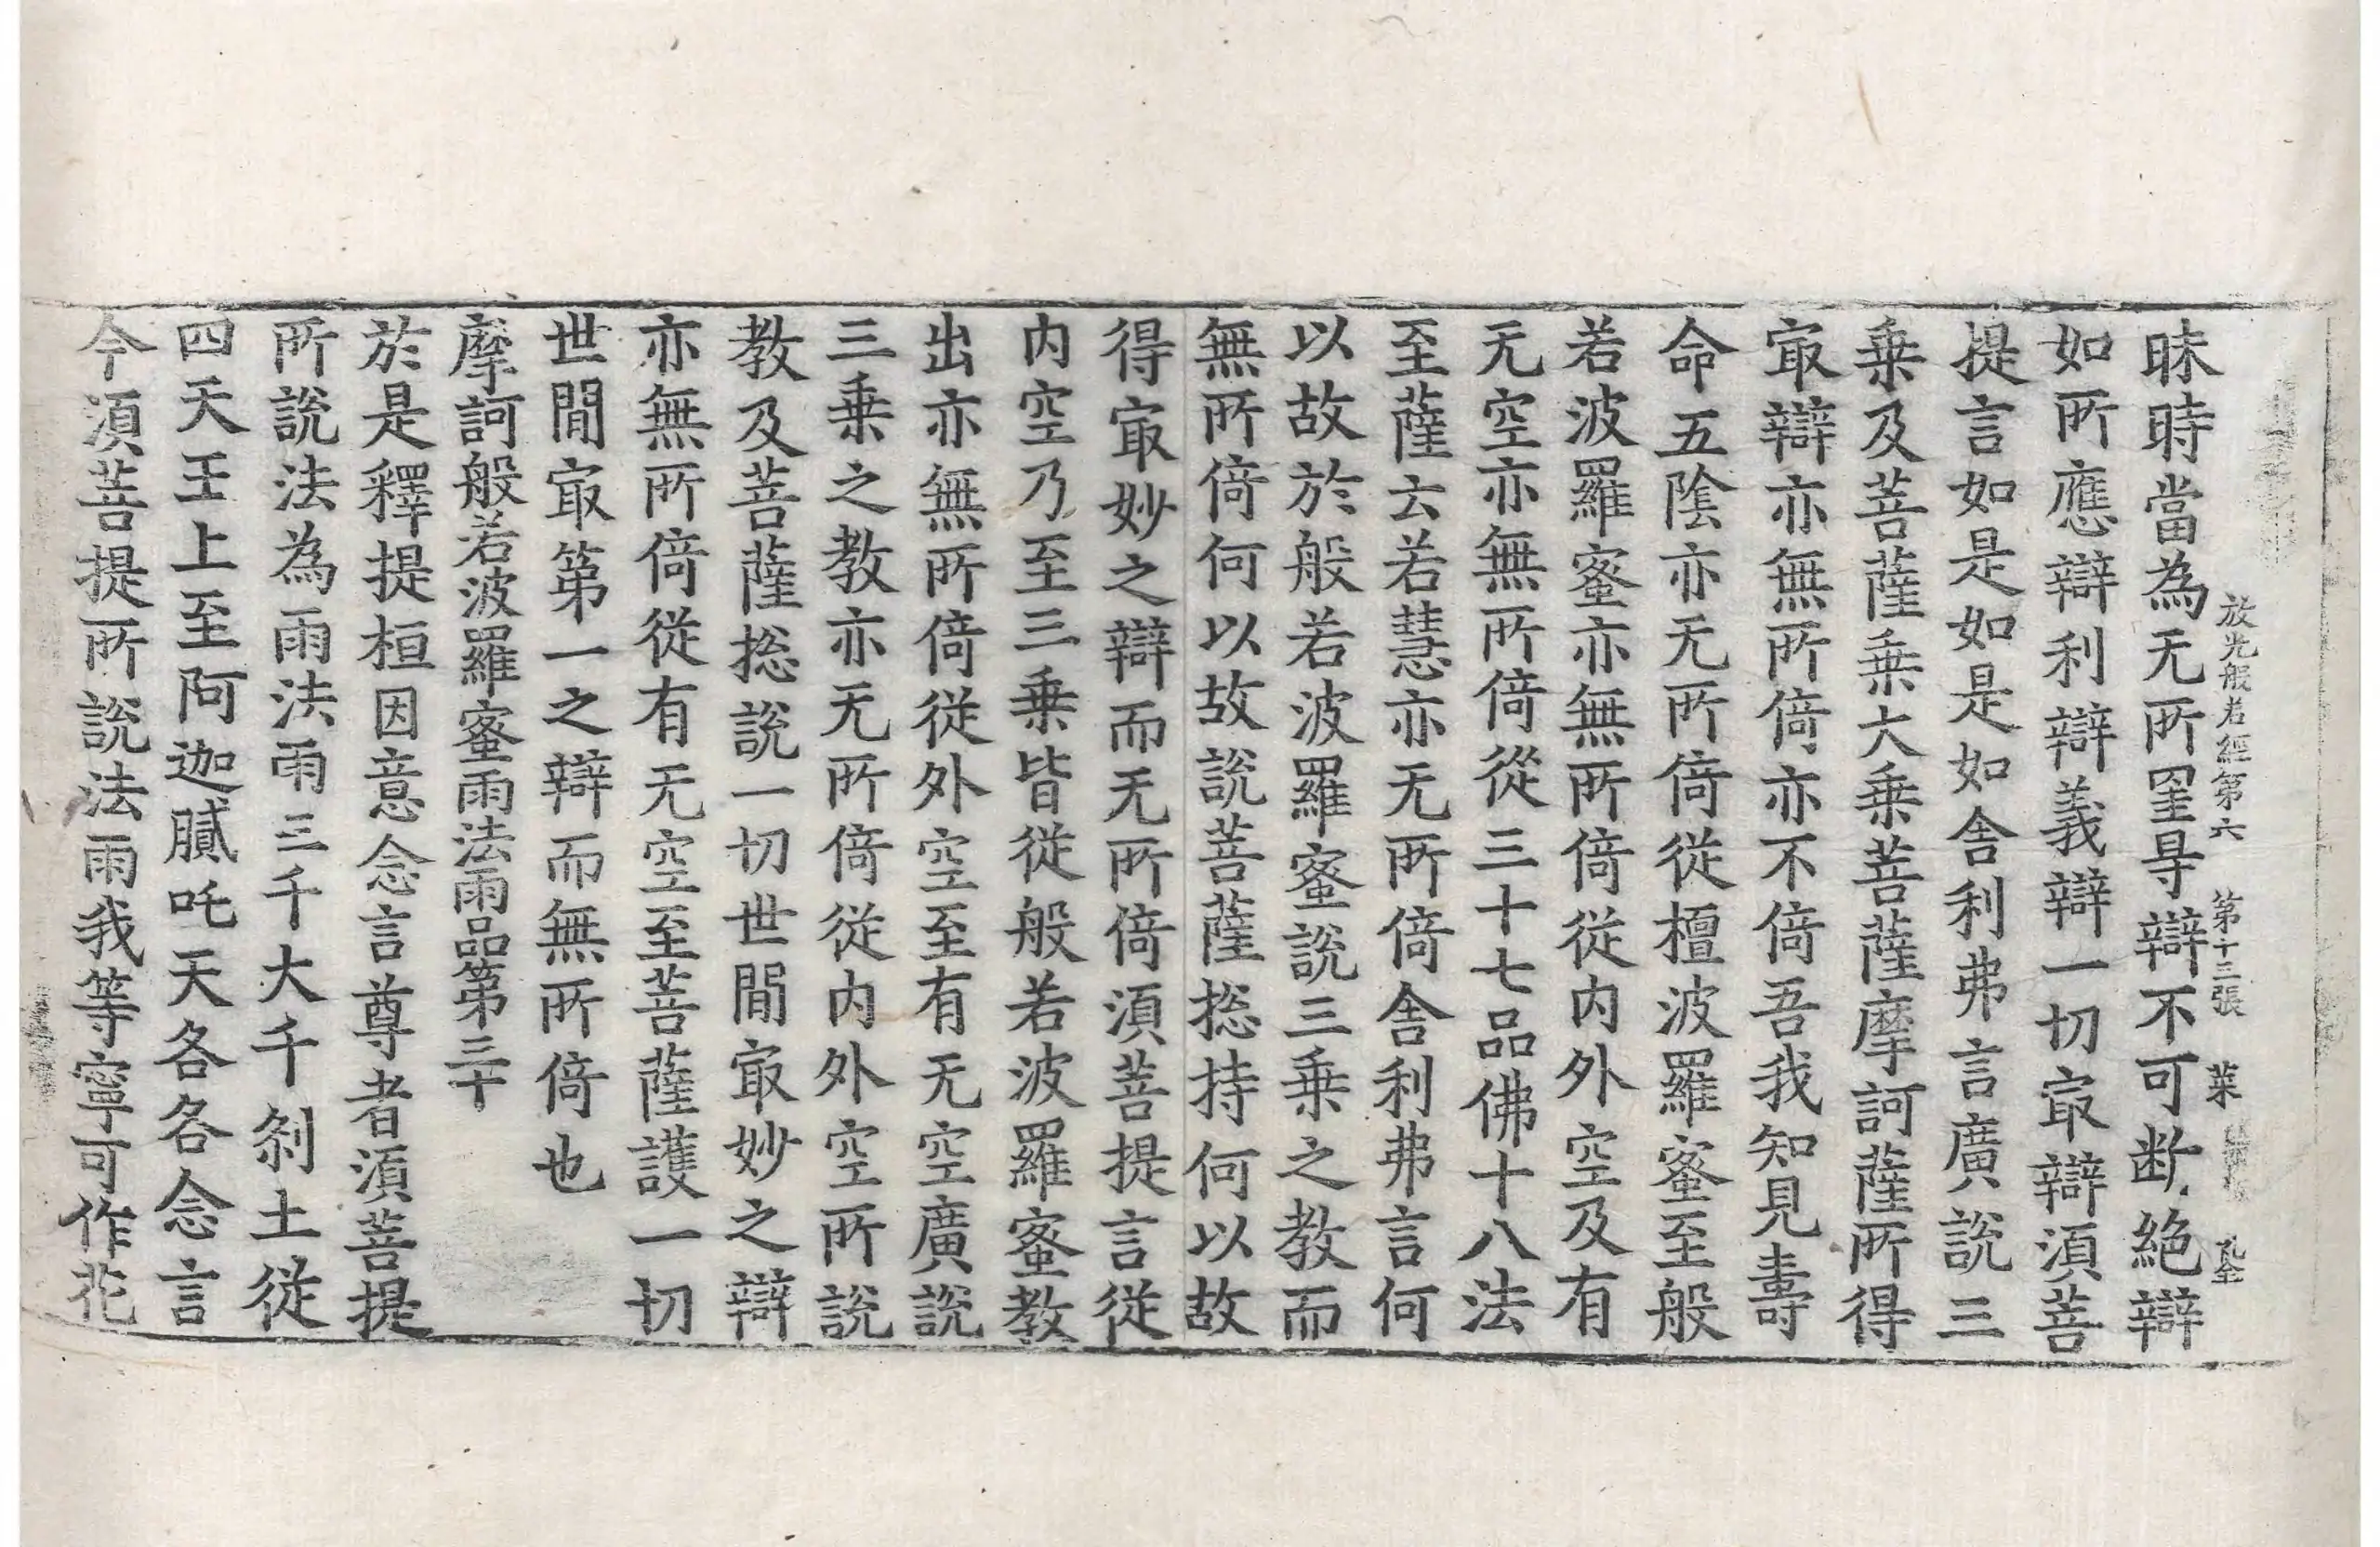 放光般若經第六 第十三張 菜
昧時當為无所罣㝵辯不可断絶辯
如所應辯利辯義辯一切㝡辯湏菩
提言如是如是如舍利弗言廣説三
乗及菩薩乗大乗菩薩摩訶薩所得
㝡辯亦無所倚亦不倚吾我知見壽
命五陰亦无所倚從檀波羅蜜至般
若波羅蜜亦無所倚從内外空及有
无空亦無所倚從三十七品佛十八法
至薩云若慧亦无所倚舎利弗言何
以故於般若波羅蜜説三乗之教而
無所倚何以故説菩薩捴持何以故
得㝡妙之辯而无所倚湏菩提言從
内空乃至三乗皆從般若波羅蜜教
出亦無所倚從外空至有无空廣説
三乗之教亦无所倚從内外空所説
教及菩薩捴説一切世間㝡妙之辯
亦無所倚從有无空至菩薩護一切
世間㝡第一之辯而無所倚也
摩訶般若波羅蜜雨法雨品第三十
於是釋提桓因意念言尊者湏菩提
所説法為雨法雨三千大千刹土從
四天王上至阿迦膩吒天各各念言
今湏菩提所説法雨我等寧可作花